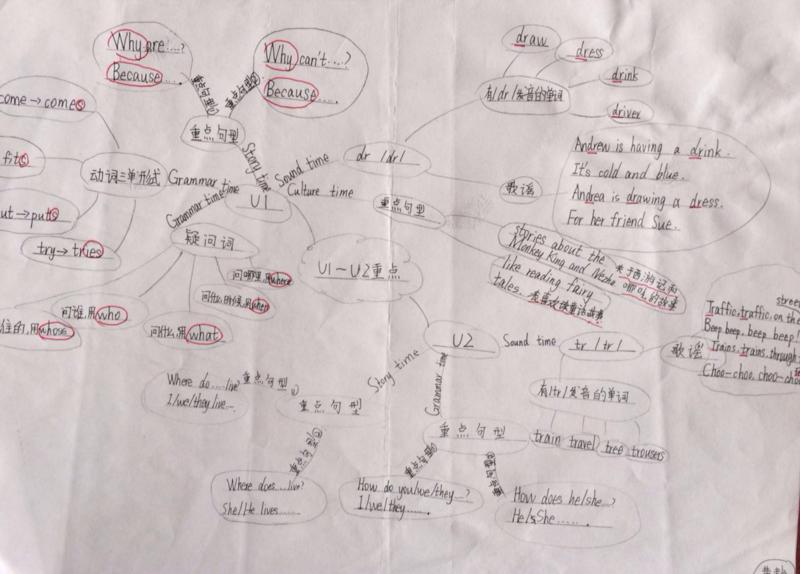 Why are......?
Because......
重点句型①
Why can't......?
Because......
重点句型②
重点句型
Story time
U1
Grammar time
动词三单形式
come→comes
fits
put→puts
try→tries
Grammar time
疑问词
问哪里,用where
问什么时候,用when
问什么,用what
问谁,用who
的,用whose
Sound time
dr /dr/
有/dr/发音的单词
draw
dress
drink
driver
歌谣
Andrew is having a drink.
It's cold and blue.
Andrea is drawing a dress.
For her friend Sue.
Culture time
重点句型
stories about the
Monkey King and Nezha
关于西游记和
哪吒的故事
like reading fairy
tales. 喜欢读童话故事
U1~U2重点
U2
Sound time
tr /tr/
有/tr/发音的单词
train
travel
tree
trousers
歌谣
street
Traffic, traffic, on the
Beep beep, beep beep!
Trains, trains, through
Choo-choo, choo-choo
Story time
重点句型
重点句型①
Where do......live?
I/we/they live......
重点句型②
Where does......live?
She/He lives......
Grammar time
重点句型
重点句型①
How do you/we/they......?
I/we/they......
重点句型②
How does he/she......?
He/She......